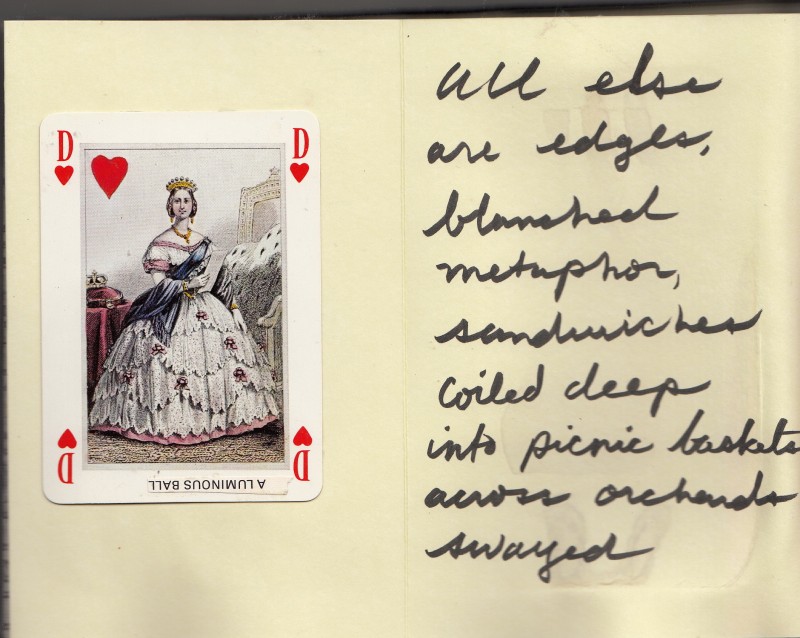 D
D
A LUMINOUS BALL
D
D
All else
are edges,
blanched
metaphor,
sandwiches
coiled deep
into picnic baskets
across orchards
swayed